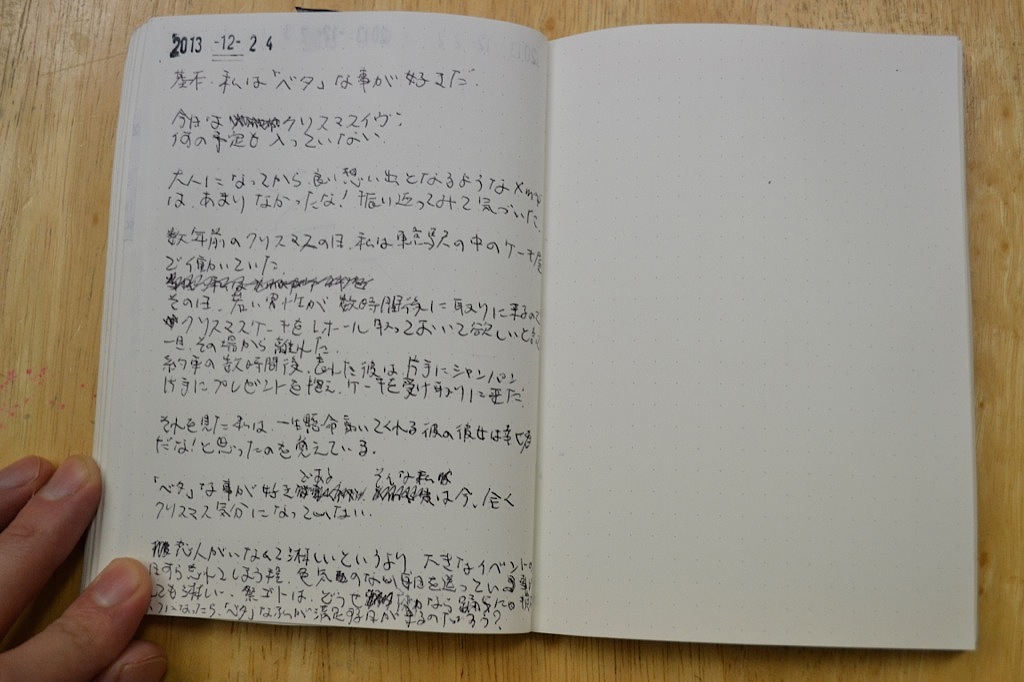 2013 -12- 24
基本、私は「ベタ」な事が好きだ。
今日は クリスマスイヴ。
何の予定も入っていない。
大人になってから、良い想い出となるようなXmas
は、あまりなかったな！振り返ってみて気づいた。
数年前のクリスマスの日、私は東急駅の中のケーキ屋
で働いていた。
その日、若い男性が数時間後に取りに来るので
クリスマスケーキを1ホール取っておいて欲しいと言
一旦、その場から離れた。
約束の数時間後、表れた彼は片手にシャンパン
片手にプレゼントを抱え、ケーキを受け取りに来た。
それを見た私は、一生懸命働いてくれる彼の彼女は幸せ者
だな！と思ったのを覚えている。
「ベタ」な事が好き である そんな私 は今、全く
クリスマス気分になっていない。
恋人がいなくて淋しいというより 大きなイベントの
日すら忘れてしまう程、色気のない毎日を送っている
も淋しい。祭ゴトは、どうせ なら
になったら、「ベタ」な私が満足する日が来るのだろう？